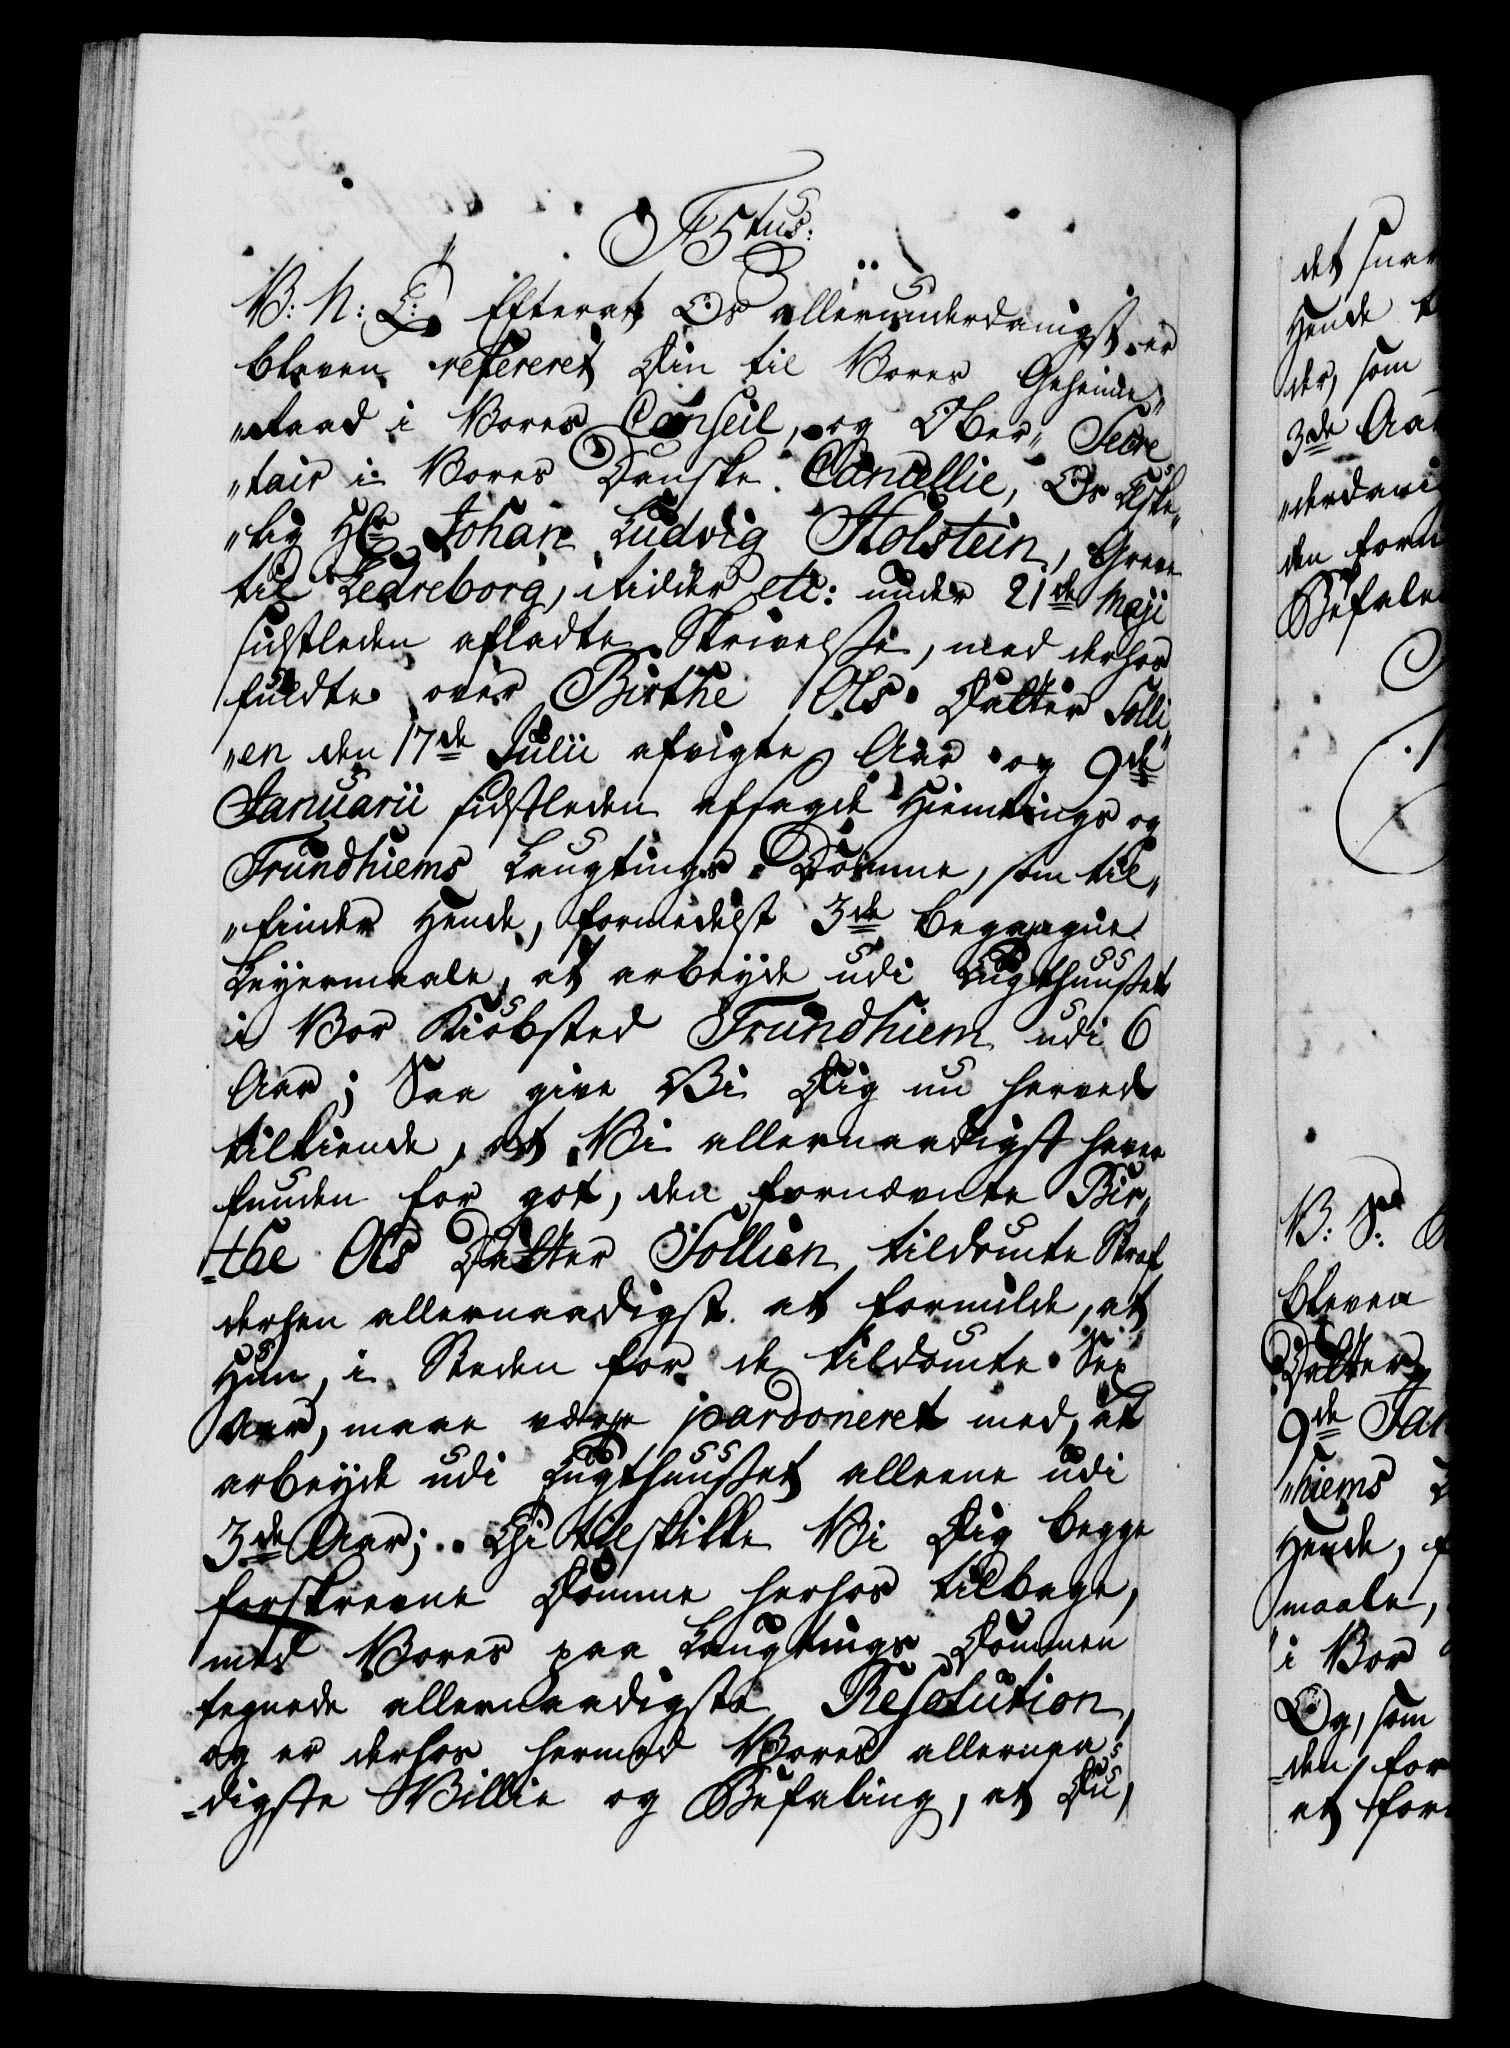 F5tus:
V: N: L: Efterat Os allerunderdanigst er
bleven refereret Din til Vores Geheime„
„Raad i Vores Conseil, og Ober„ Secre
„tair i Vores Danske Cancellie, Os Elske„
„lig Hr Johan Ludvig Holstein, Greve
til Ledreborg, Ridder etc: under 21de Maji
sidstleden afladte Skrivelse, med derhos
fuldte over Birthe Ols Datter Solli„
„en den 17de Julii afvigte Aar og 9de
Januarii sidstleden afsagde Hiemtings og
Trundhiems Laugtings Domme, som til„
„finder Hende, formedelst 3de begangne
Leyermaale, at arbeyde udi Tugthuuset
i Vor Kiøbsted Trundhiem udi 6
Aar; Saa give Vi Dig nu herved
tilkiende, at Vi allernaadigst haver
funden for got, den fornævnte Bir„
„the Ols Datter Sollien tildømte Straf
derhen allernaadigst at formilde, at
Hun, i Steden for de tildømte Sex
Aar, maae være pardoneret med, at
arbeyde udi Tugthuuset alleene udi
3de Aar; Thi tilskikke Vi Dig begge
forskrevne Domme herhos tilbage,
med Vores paa Laugtings Dommen
tegnede allernaadigste Resolution,
og er derhos hermed Vores allernaa„
„digste Villie og Befaling, at Du,
det snar
Hende t
der, som
3de Aar
„derdanig
den forn
Befale
V: S:
bleven
Datter
9de Jan
„hiems
Hende, f
maale,
i Vor
Og, som
„den for
at for